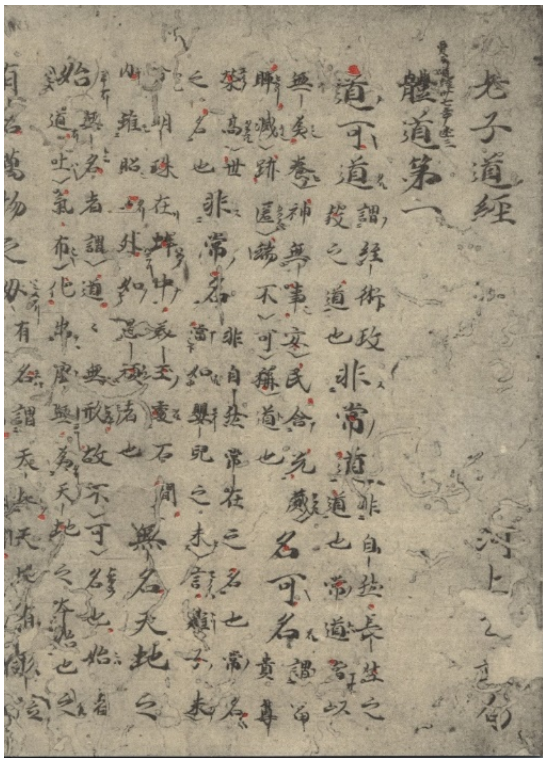 老子道經 河上公章句
體道第一
道可道謂經術政教之道也非常道非自然長生之道也常道當以
無為養神無事安民含光藏暉滅跡匿端不可稱道也名可名謂富貴尊
榮高世之名也非常名非自然常在之名也常名當如嬰兒之未言雞子未
分明珠在蚌中美玉處石間內雖昭〻外如愚頑者也無名天地之
始無名者謂道〻無形故不可名也始者道吐氣布化出於虛無為天地之本始也之
有名萬物之母有名謂天地天地有形位